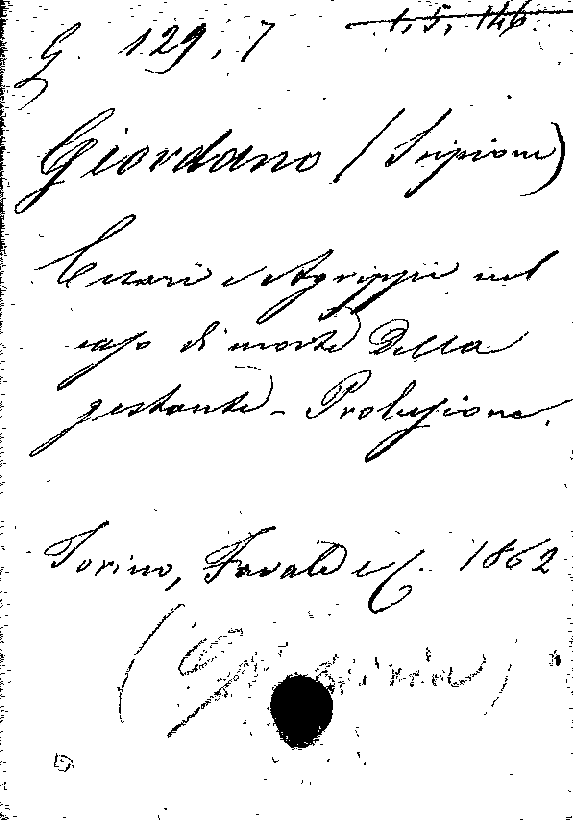 G. 129, 7 1, 5, 146.
Giordano (Scipione)
Cesari e Agrippi nel
caso di morte Della
gestante - Prolusione.
Torino, Favale e C. 1862